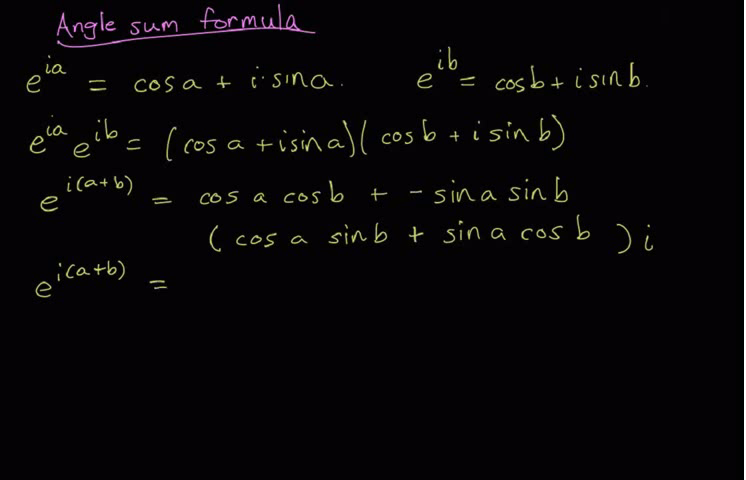 Angle sum formula
e^{ia} = cos a + i · sin a. e^{ib} = cos b + i sin b.
e^{ia} e^{ib} = (cos a + i sin a)(cos b + i sin b)
e^{i(a+b)} = cos a cos b + - sin a sin b
(cos a sin b + sin a cos b) i
e^{i(a+b)} =